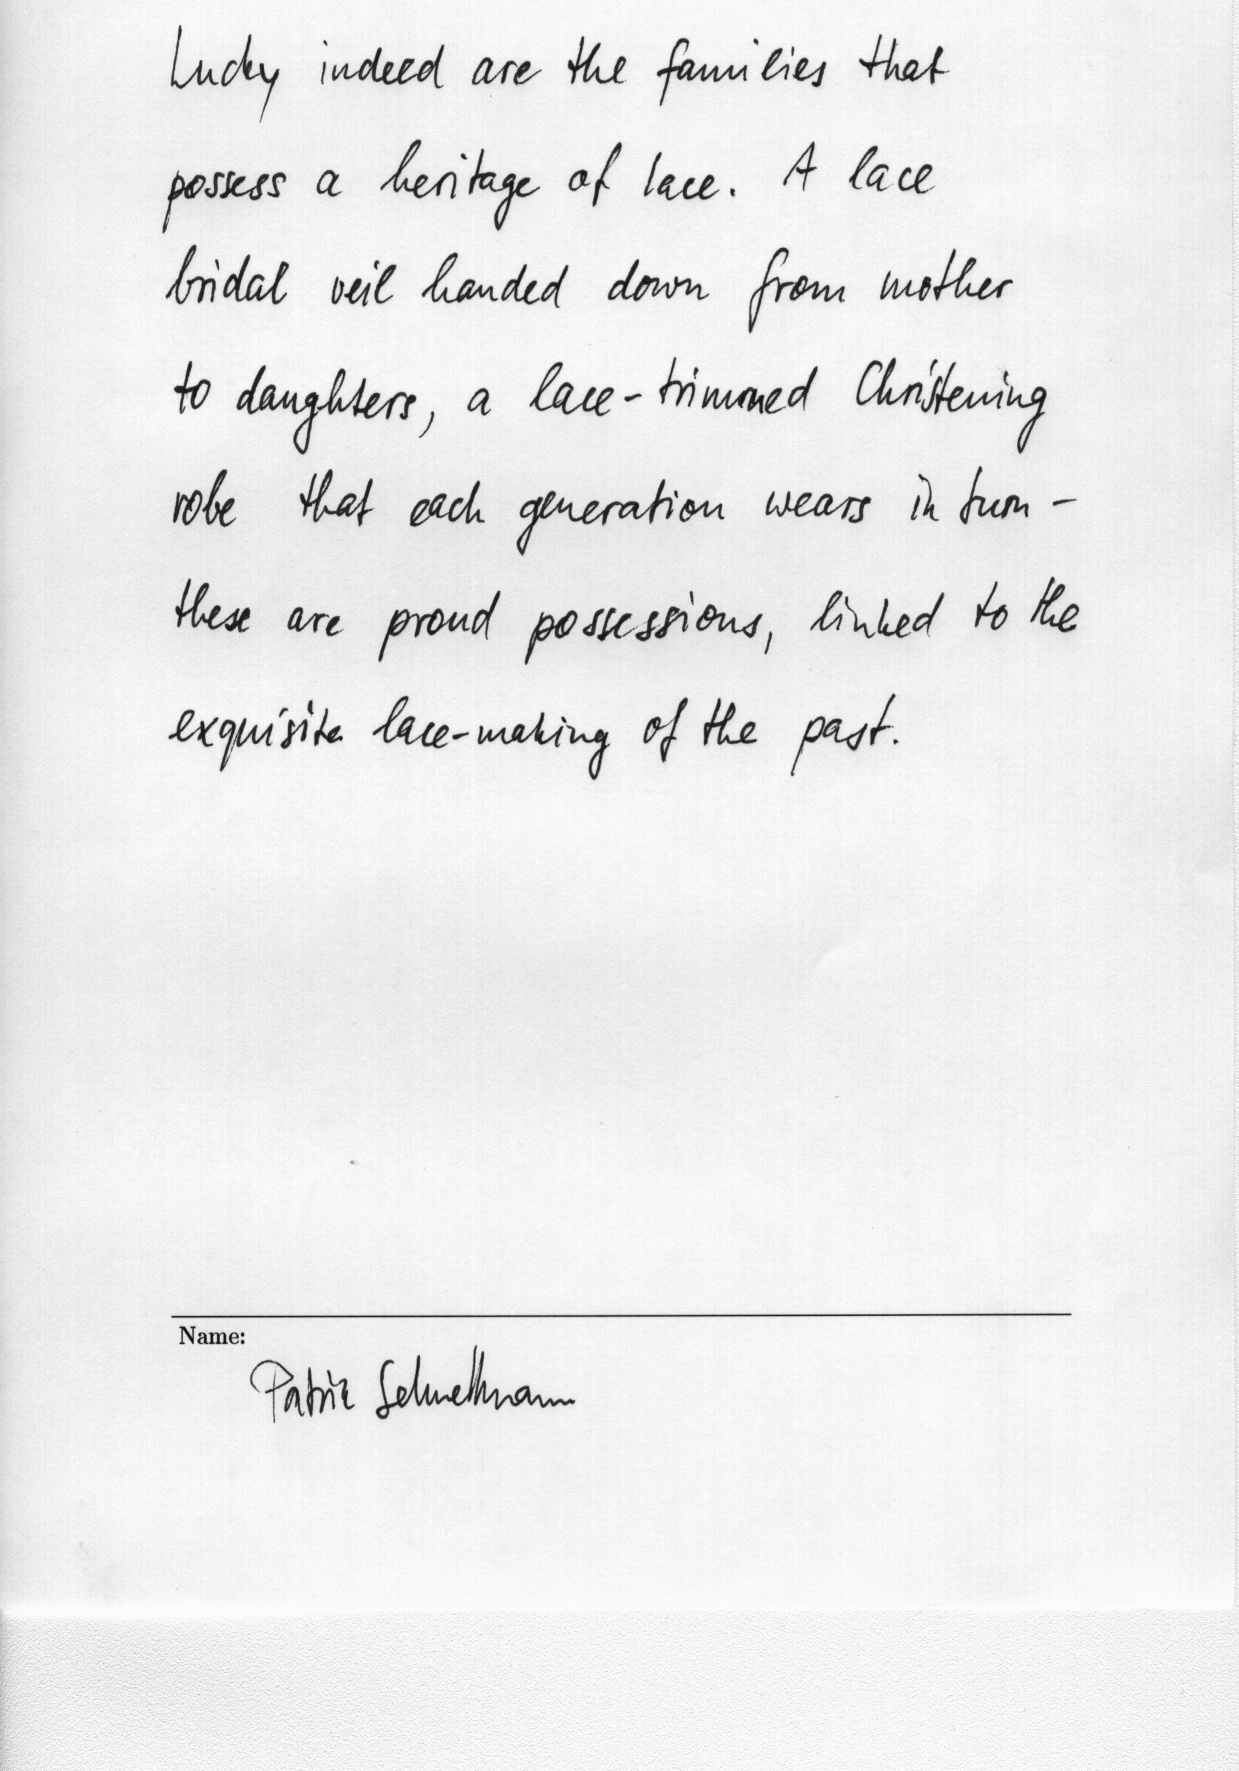 Lucky indeed are the families that
possess a heritage of lace. A lace
bridal veil handed down from mother
to daughters, a lace-trimmed Christening
robe that each generation wears in turn -
these are proud possessions, linked to the
exquisite lace-making of the past.
Name:
Patrik Schnellmann